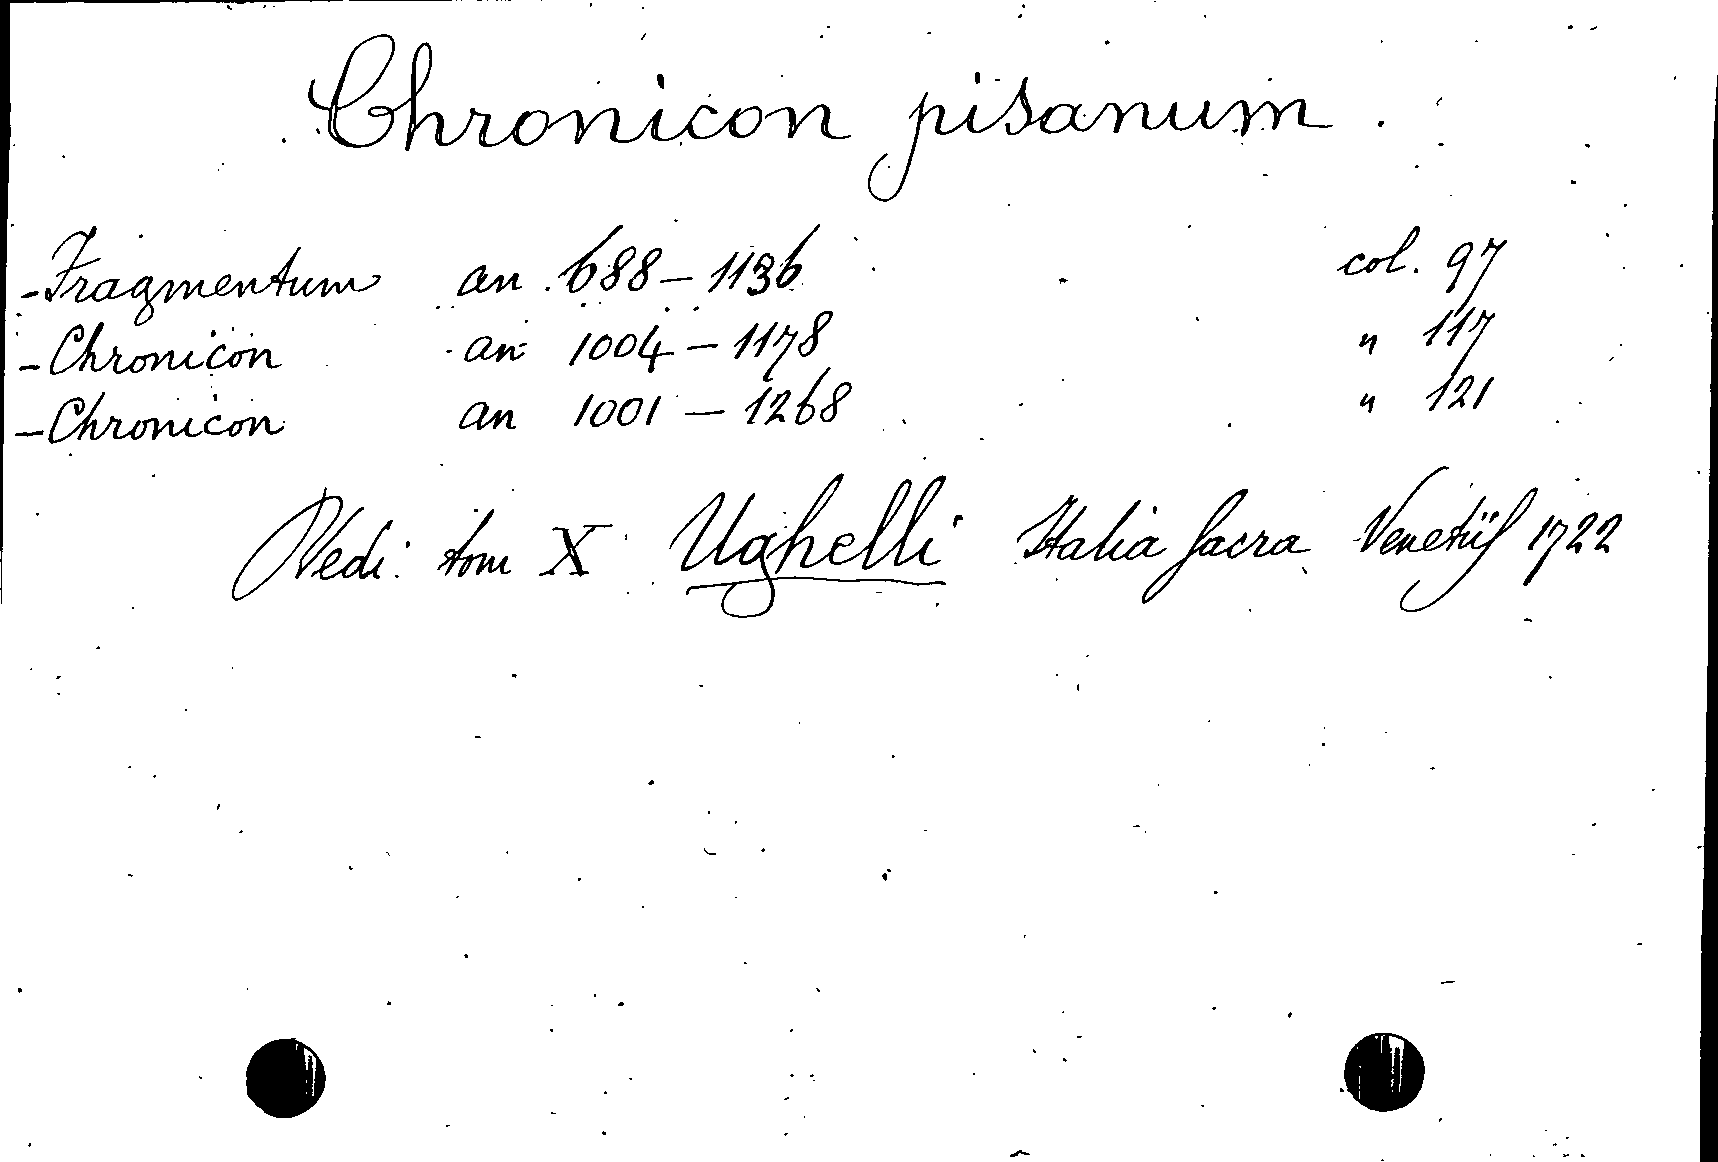 Chronicon pisanum.
- Fragmentum an 688 – 1136 col. 97
- Chronicon an 1004 – 1178 " 117
- Chronicon an 1001 – 1268 " 121
Vedi: tom X Ughelli Italia sacra Venetiis 1722